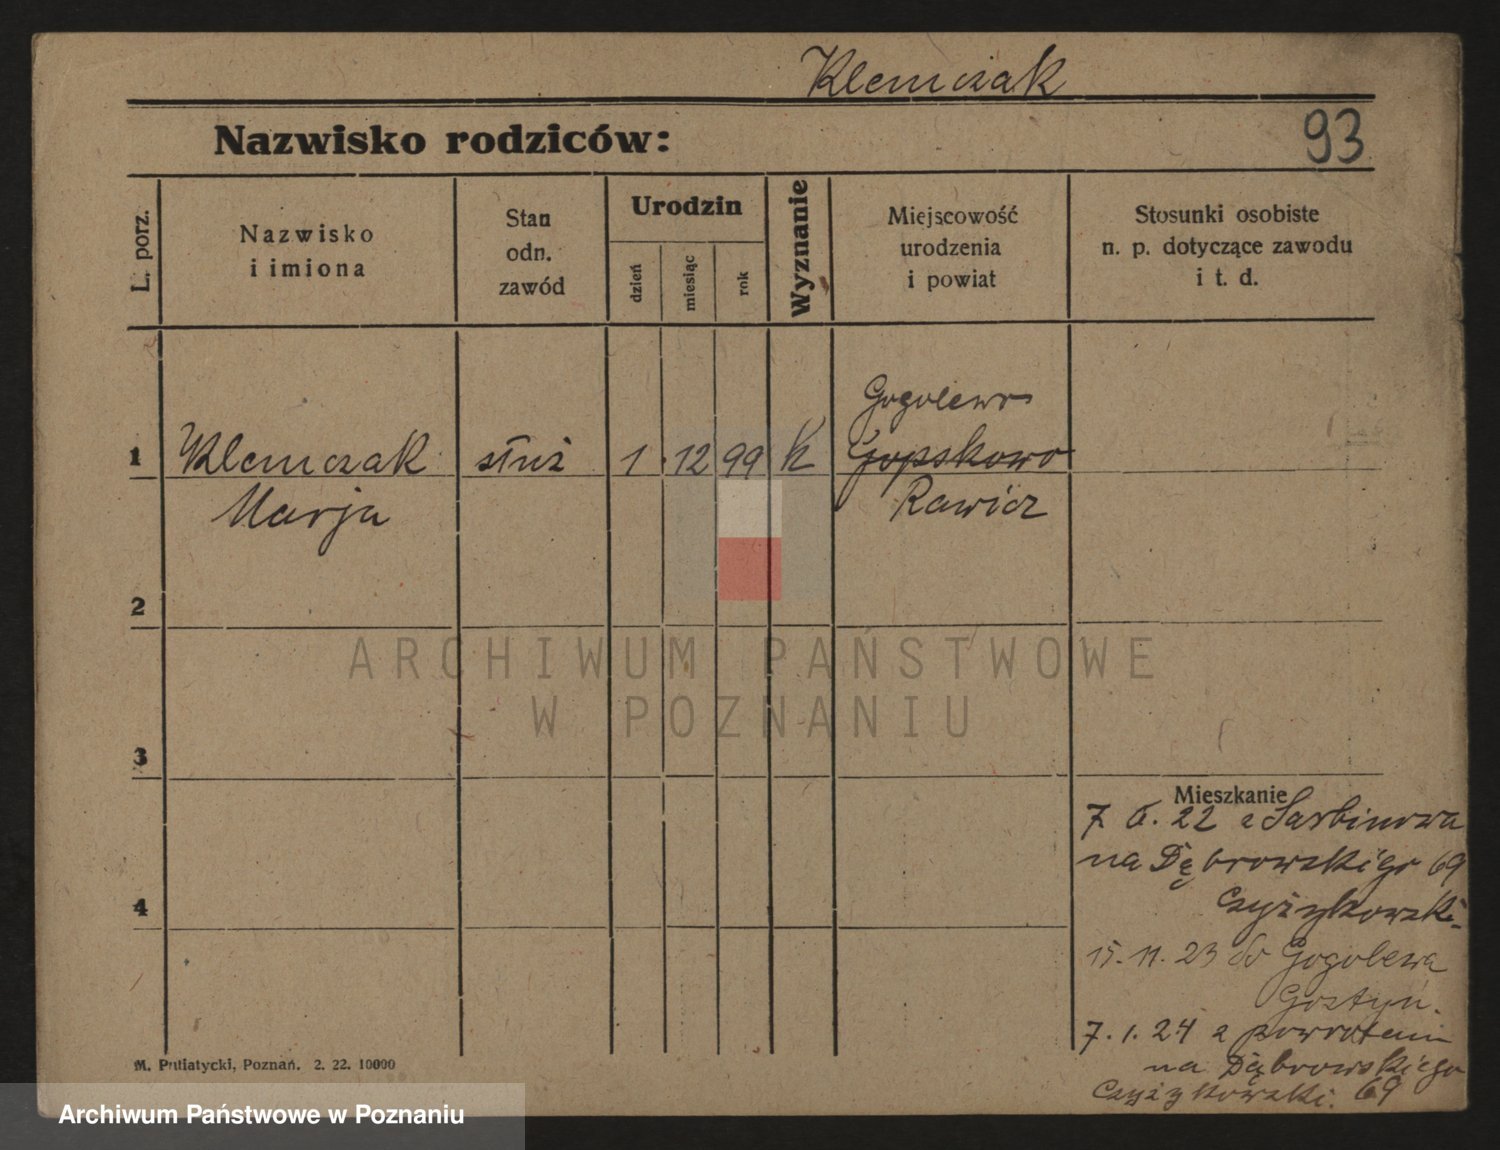 Klemczak
Nazwisko rodziców:
93
L. porz.
Nazwisko
i imiona
Stan
odn.
zawód
Urodzin
dzień
miesiąc
rok
Wyznanie
Miejscowość
urodzenia
i powiat
Stosunki osobiste
n. p. dotyczące zawodu
i t. d.
Gogolewo
1 Klemczak służ 1 12 99 K Gopskowo
Marja Rawicz
2
ARCHIWUM PAŃSTWOWE
W POZNANIU
3
Mieszkanie
7. 6. 22 z Sarbinowa
na Dąbrowskiego 69
Czyżykowski.
4
15. 11. 23 do Gogolewa
Gostyń.
7. 1. 24 z powrotem
na Dąbrowskiego
Czyżykowski. 69
M. Putiatycki, Poznań. 2. 22. 10000
Archiwum Państwowe w Poznaniu